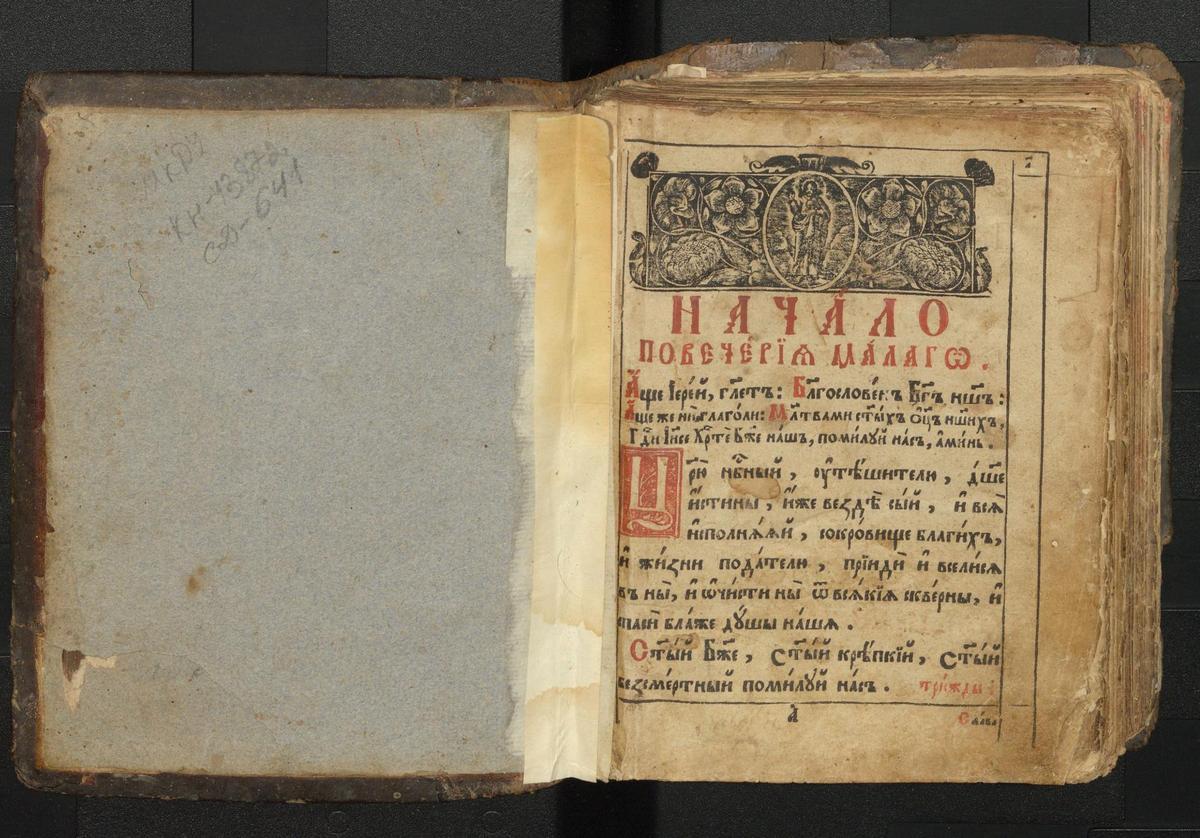 КН-43872
СД-641
НАЧА́ЛО
ПОВЕЧЕ́РЇѦ МА́ЛАГѠ.
А҆́ще І҆ере́й, гл҃етъ: Бл҃гослове́нъ Бг҃ъ нш҃ъ:
А҆́ще же ни̑ глаго́ли: Мл҃твами ст҃ы́хъ ѻ҆ц҃ъ нш҃ихъ,
Гд҇и І҆и҃се Хр҇тѐ Бж҃е на́шъ, поми́лꙋй на́съ, а҆ми́нь.
Цр҃ю̀ нбⷭ҇ный, ᲂу҆тѣ́шителю, дш҃е
и҆́стины, и҆́же вездѣ̀ сы́й, и҆ всѧ̀
и҆сполнѧ́ѧй, сокро́вище благи́хъ,
и҆ жи́зни пода́телю, прїидѝ и҆ всели́сѧ
въ ны̀, и҆ ѡ҆чи́сти ны̀ ѿ всѧ́кїѧ скве́рны, и҆
спасѝ бла́же дꙋ́шы на́шѧ.
Ст҃ы́й Бж҃е, ст҃ы́й крѣ́пкїй, ст҃ы́й
безсме́ртный поми́лꙋй на́съ. три́жды:
А҃
Сла́ва